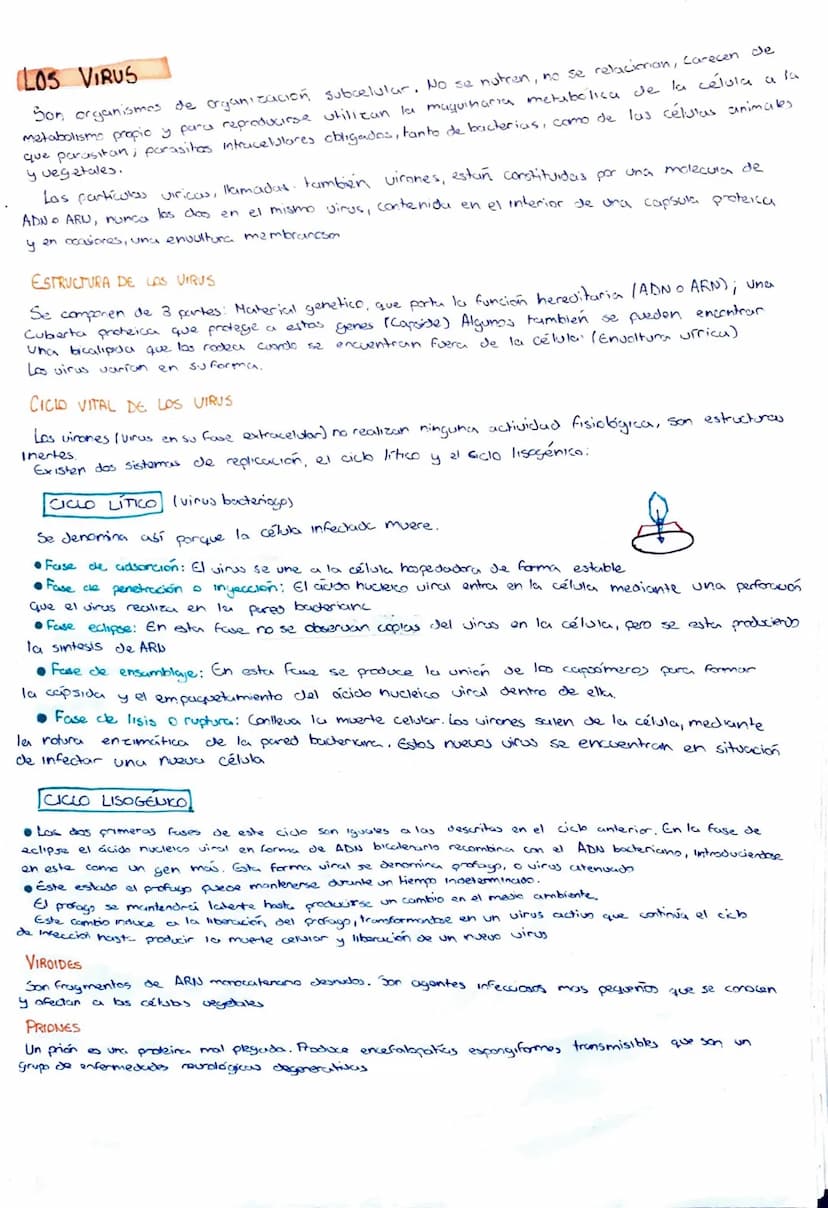 LOS VIRUS
Son organismos de organización subcelular. No se nutren, no se relacionan, carecen de
metabolismo propio y para reproducirse utilizan la maquinaria metabólica de la célula a la
que parasitan; parasitos intracelulares obligados, tanto de bacterias, como de las células animales
y vegetales.
Las partículas viricas, llamadas también virones, estan constituidas por una molecula de
ADN o ARN, nunca los dos en el mismo virus, contenida en el interior de una capsula proteica
y en ocasiones, una envoltura membranosa
ESTRUCTURA DE LOS VIRUS
Se componen de 3 partes: Material genetico, que porta la función hereditaria (ADN o ARN); una
cubierta proteica que protege a estos genes (Capside) Algunos tambien se pueden encontrar
una bicalipida que los rodea cuando se encuentran fuera de la célula (Envoltura vírica)
Los virus varian en su forma.
CICLO VITAL DE LOS VIRUS
Los virones (virus en su fase extracelular) no realizan ninguna actividad fisiológica, son estructuras
inertes.
Existen dos sistemas de replicación, el ciclo lítico y el ciclo lisogénico:
CICLO LÍTICO (virus bacteriogo)
Se denomina así porque la célula infectada muere.
• Fase de adsorción: El virus se une a la célula hospedadora de forma estable
• Fase de penetración o inyección: El ácido nucleico viral entra en la célula mediante una perforación
que el virus realiza en la pared bacteriana
• Fase eclipse: En esta fase no se observan copias del virus en la célula, pero se esta produciendo
la sintesis de ARN
• Fase de ensamblaje: En esta fase se produce la unión de los capsómeros para formar
la cápsida y el empaquetamiento del ácido nucleico viral dentro de ella.
• Fase de lisis o ruptura: Conlleva la muerte celular. Los virones salen de la célula, mediante
la rotura enzimática de la pared bacteriana. Estos nuevos virus se encuentran en situación
de infectar una nueva célula
CICLO LISOGÉNICO
• Las dos primeras fases de este ciclo son iguales a las descritas en el ciclo anterior. En la fase de
eclipse el ácido nucleico viral en forma de ADN bicatenario recombina con el ADN bacteriano, introduciendose
en este como un gen mas. Esta forma viral se denomina profago, o virus atenuado
• Este estado el profago puede mantenerse durante un tiempo indeterminado.
El profago se mantendrá latente hasta producirse un cambio en el medio ambiente.
Este cambio induce a la liberación del profago, transformandose en un virus activo que continúa el ciclo
de infección hasta producir la muerte celular y liberación de un nuevo virus
VIROIDES
Son fragmentos de ARN monocatenario desnudos. Son agentes infecciosos mas pequeños que se conocen
y afectan a las células vegetales
PRIONES
Un prión es una proteina mal plegada. Produce encefalopatías espongiformes transmisibles que son un
grupo de enfermedades neurológicas degenerativas